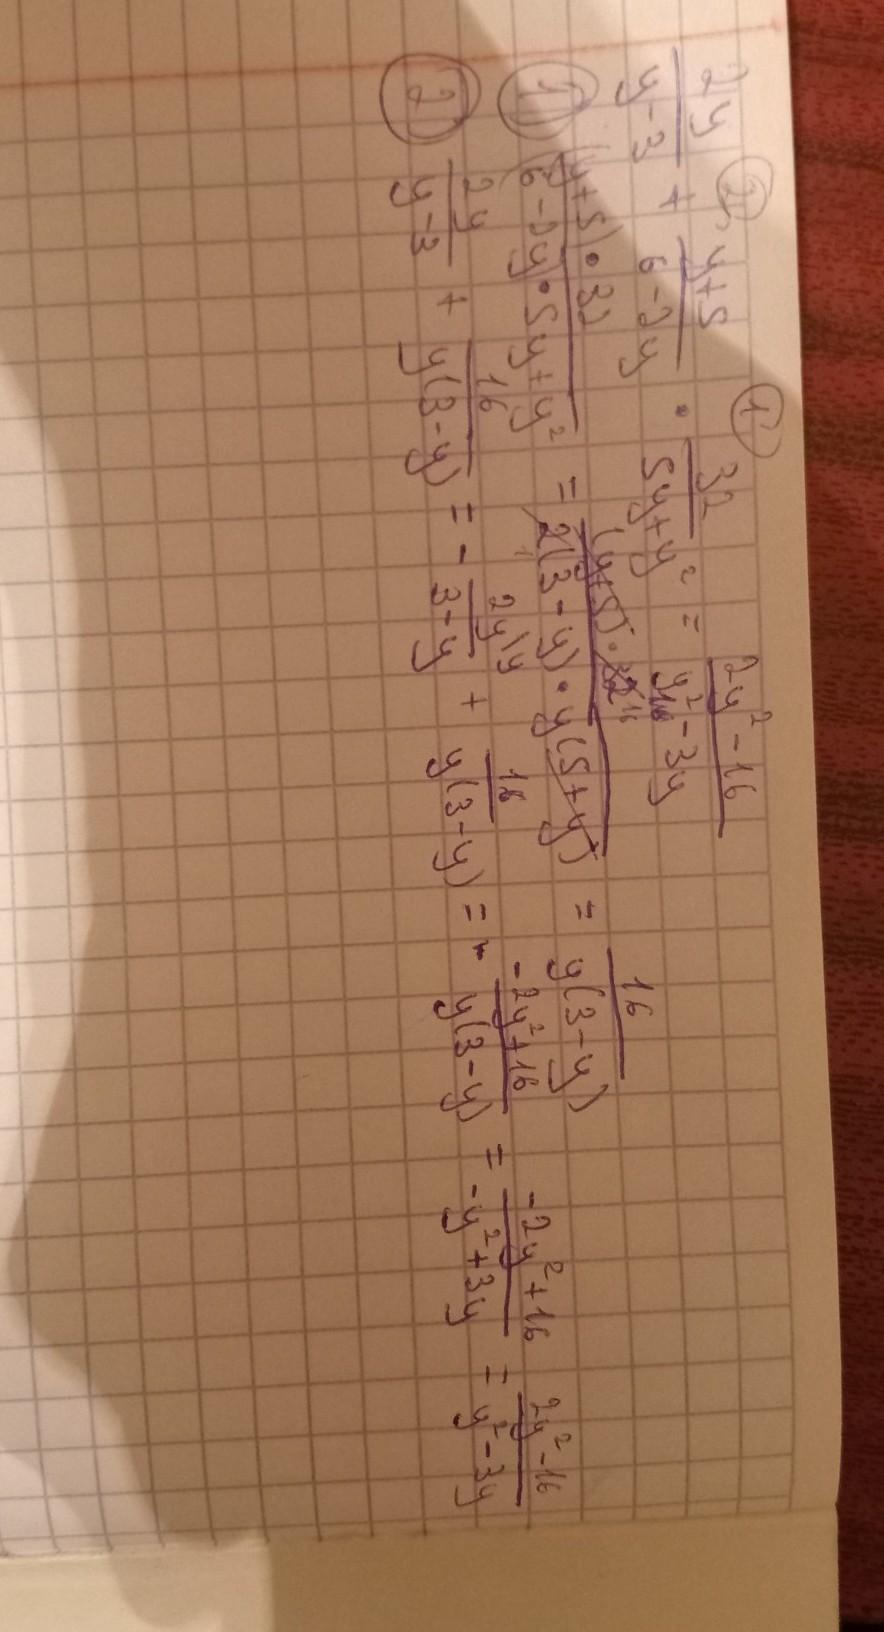 2y/(y-3) + (y+5)/(6-2y) · 32/(5y+y²) = (2y²-16)/(y²-3y)
1) (y+5)·32/((6-2y)·5y+y²) = (y+5)·32/(2(3-y)·y(5+y)) = 16/(y(3-y))
2) 2y/(y-3) + 16/(y(3-y)) = - 2y\y/(3-y) + 16/(y(3-y)) = (-2y²+16)/(y(3-y)) = (-2y²+16)/(-y²+3y) = (2y²-16)/(y²-3y)